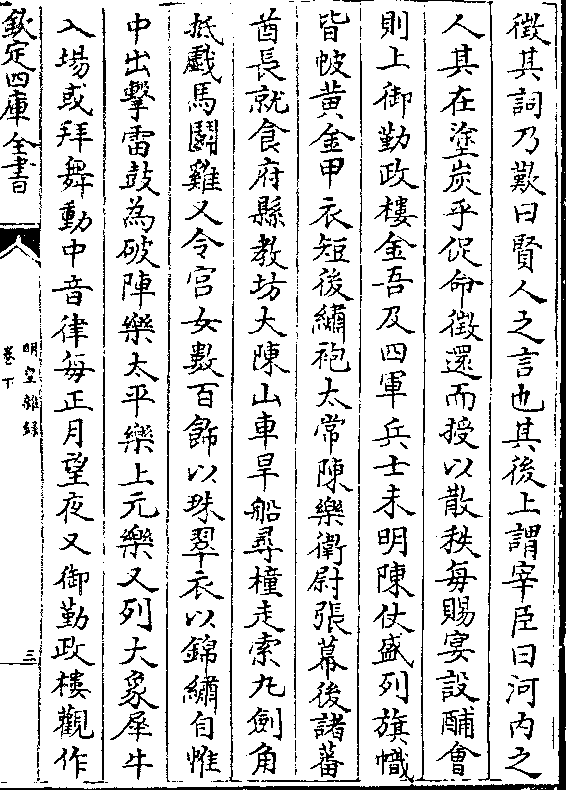 徴其詞乃歎曰賢人之言也其後上謂宰臣曰河内之
人其在塗炭乎促命徴還而授以散秩毎賜宴設酺㑹
則上御勤政樓金吾及四軍兵士未明陳仗盛列旗幟
皆帔黄金甲衣短後繡袍太常陳樂衛尉張幕後諸蕃
酋長就食府縣教坊大陳山車旱船尋橦走索丸劍角
抵戲馬鬭雞又令宫女數百飾以珠翠衣以錦繡自帷
中出擊雷鼓為破陣樂太平樂上元樂又列大象犀牛
入場或拜舞動中音律毎正月望夜又御勤政樓觀作
欽定四庫全書
明皇雜録
卷下
三